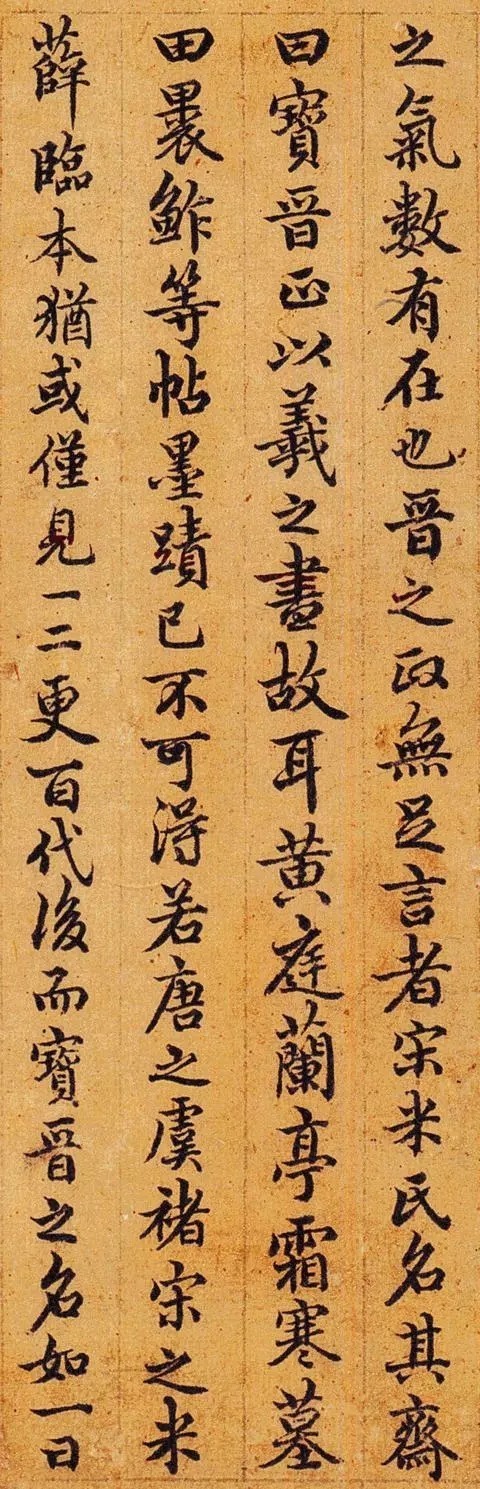 之氣數有在也晉之政無足言者宋米氏名其齋
曰寶晉正以羲之書故耳黃庭蘭亭霜寒墓
田裹鮓等帖墨蹟已不可得若唐之虞褚宋之米
薛臨本猶或僅見一二更百代後而寶晉之名如一日